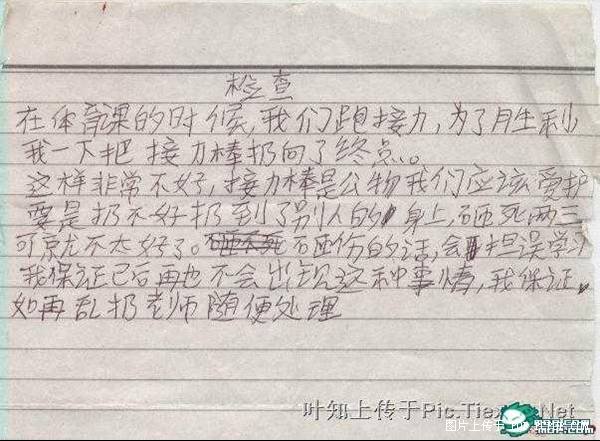 检查
在体育课的时候,我们跑接力,为了胜利
我一下把接力棒扔向了终点。
这样非常不好,接力棒是公物我们应该爱护
要是扔不好扔到了别人的身上,砸死两三
可就不太好了。砸不死砸伤的话,会担误学习
我保证已后再也不会出现这种事情,我保证。
如再乱扔老师随便处理
叶知上传于Pic.Tiex Net